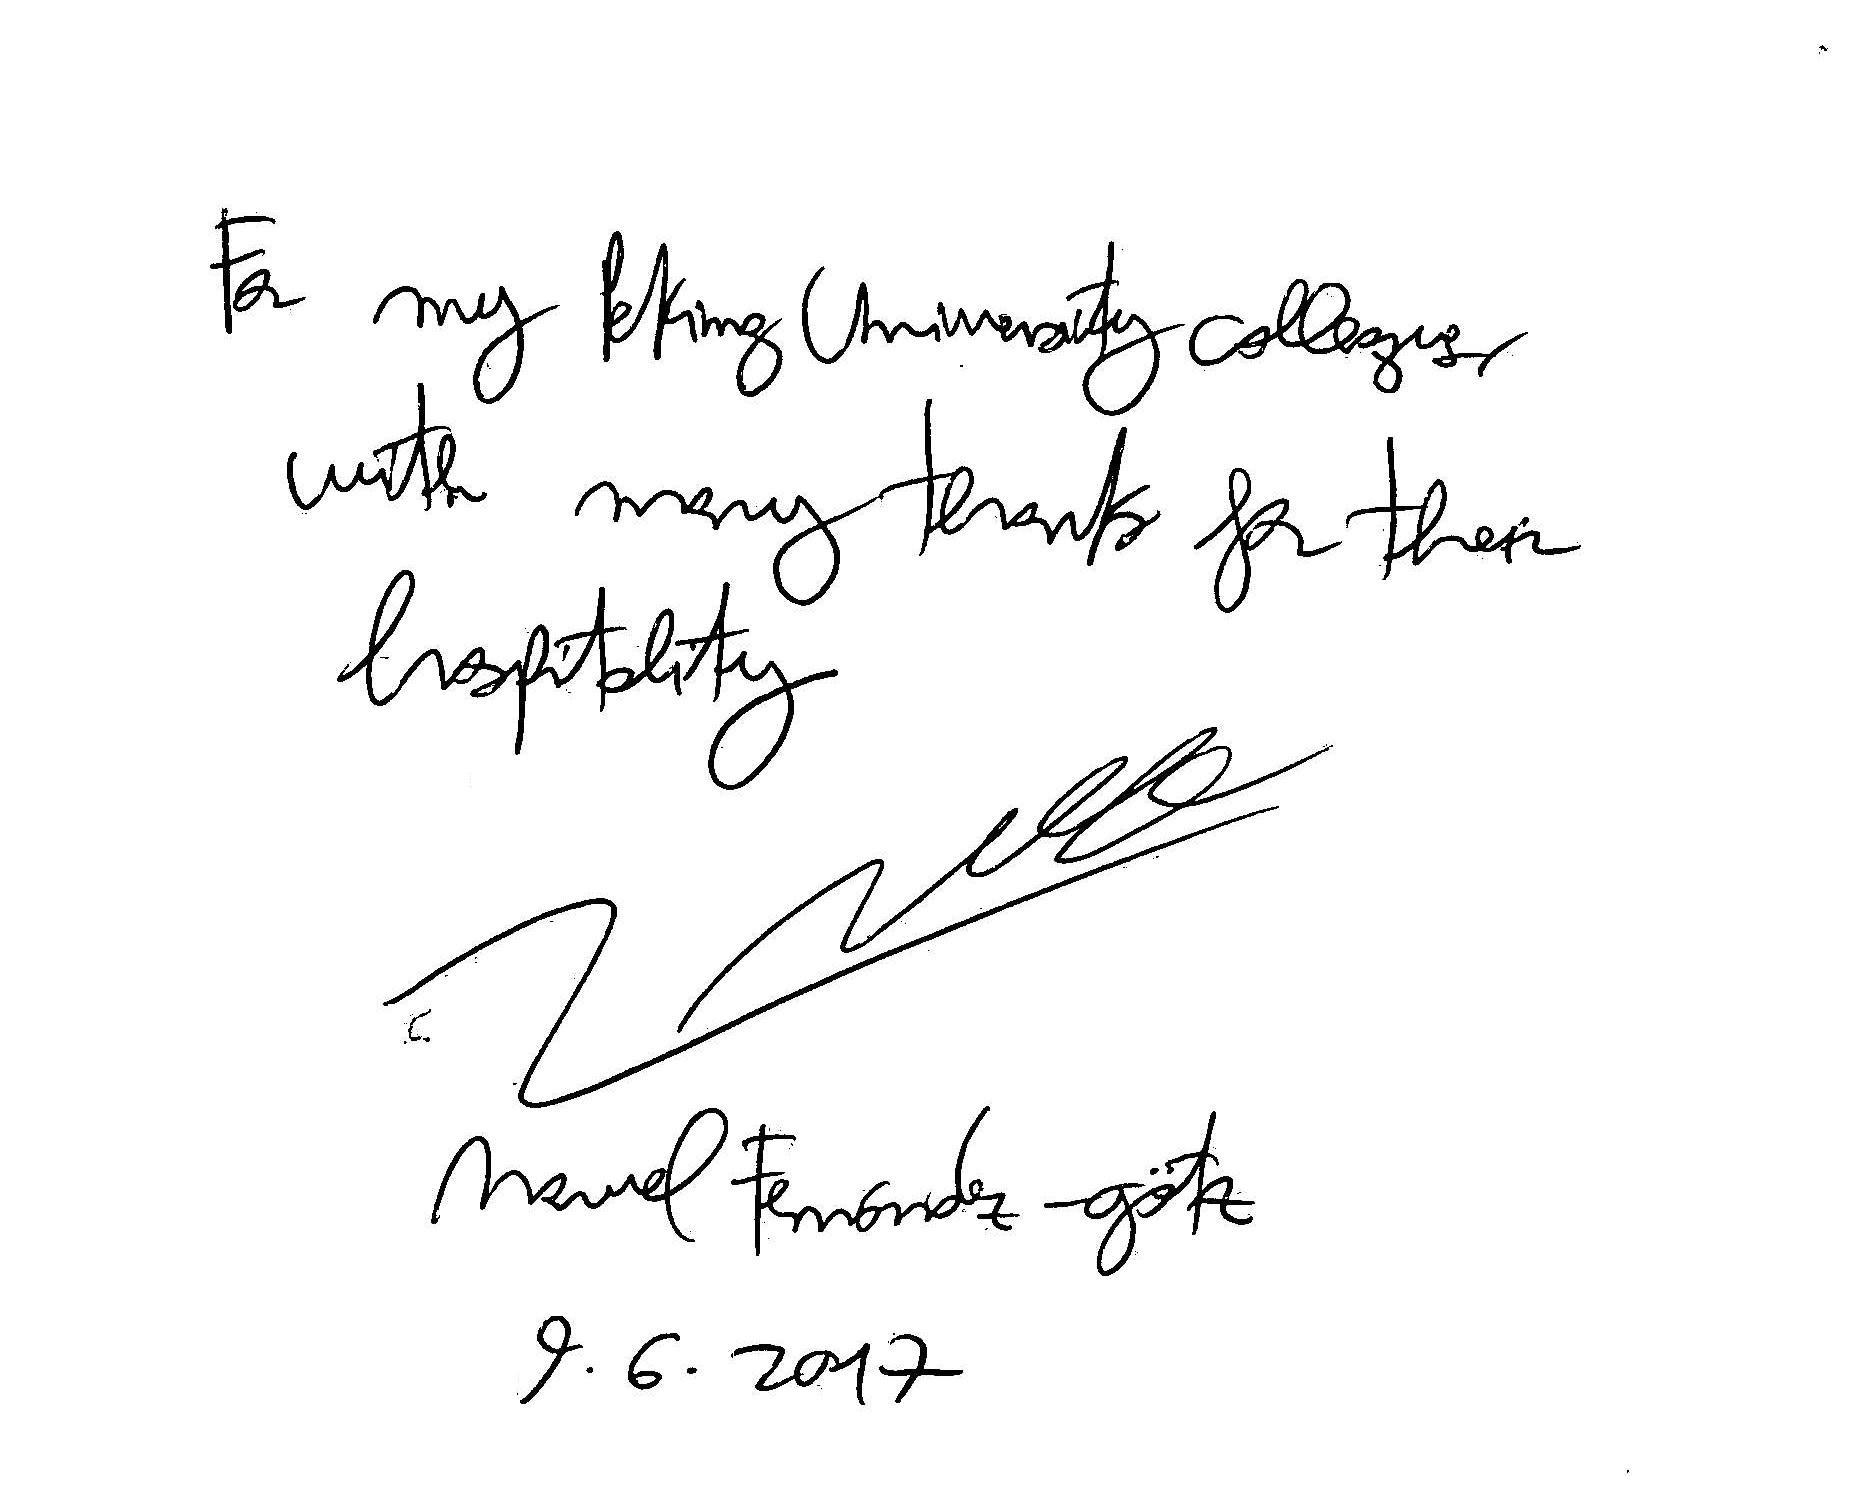 For my Peking University colleagues,
with many thanks for their
hospitality
Manuel Fernández-Götz
9.6.2017